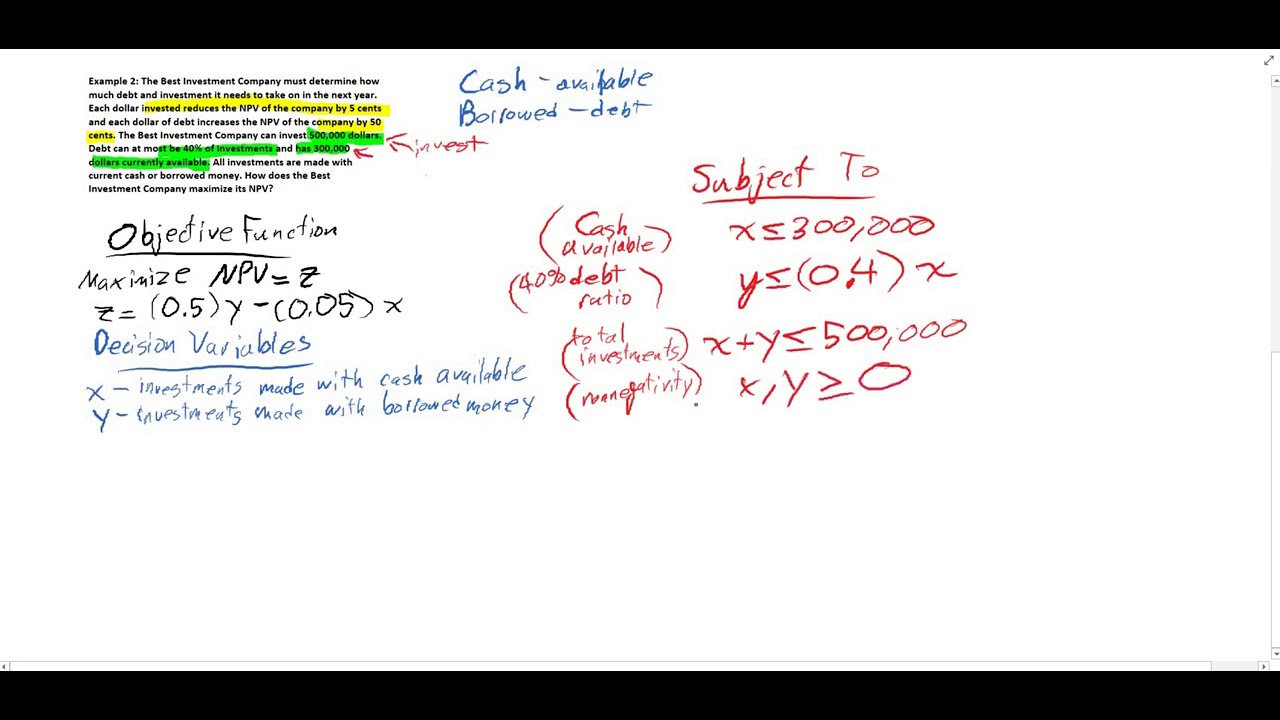 Example 2: The Best Investment Company must determine how
much debt and investment it needs to take on in the next year.
Each dollar invested reduces the NPV of the company by 5 cents
and each dollar of debt increases the NPV of the company by 50
cents. The Best Investment Company can invest 500,000 dollars.
Debt can at most be 40% of Investments and has 300,000
dollars currently available. All investments are made with
current cash or borrowed money. How does the Best
Investment Company maximize its NPV?
Cash - available
Borrowed - debt
invest
Objective Function
Maximize NPV = z
z = (0.5) y - (0.05) x
Decision Variables
x - investments made with cash available
y - investments made with borrowed money
Subject To
(Cash available) x ≤ 300,000
(40% debt ratio) y ≤ (0.4) x
(total investments) x + y ≤ 500,000
(nonnegativity) x, y ≥ 0